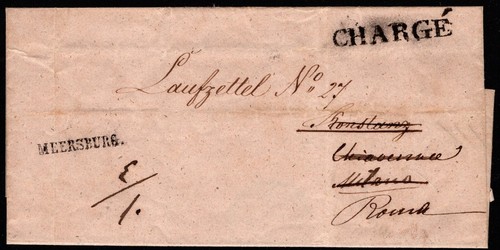 CHARGÉ
Laufzettel No 27
Konstanz
Chiavenna
MEERSBURG.
Milano
Roma
1.